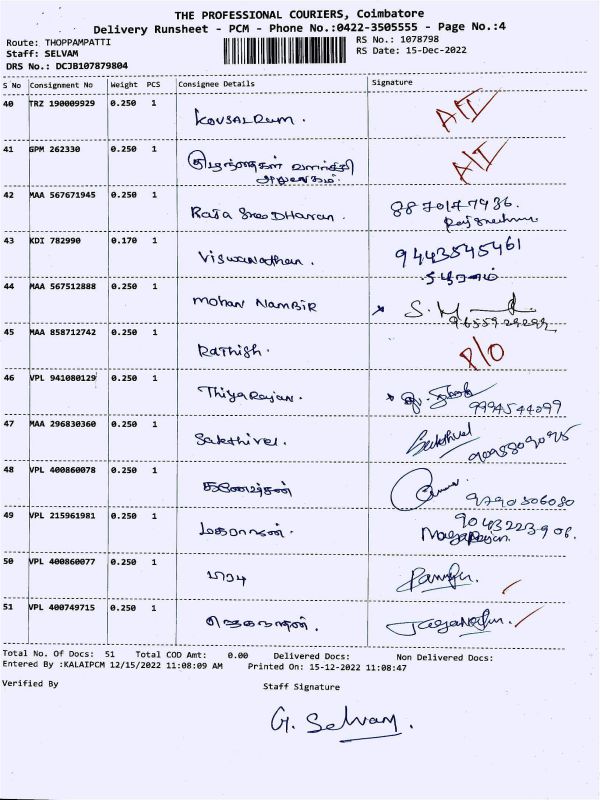 THE PROFESSIONAL COURIERS, Coimbatore
Delivery Runsheet - PCM - Phone No.:0422-3505555 - Page No.:4
Route: THOPPAMPATTI
RS No.: 1078798
Staff: SELVAM
RS Date: 15-Dec-2022
DRS No.: DCJB107879804
S No Consignment No Weight PCS Consignee Details Signature
40 TRZ 190009929 0.250 1
41 GPM 262330 0.250 1 குழந்தைகள் வளர்ச்சி
அலுவலகம்.
42 MAA 567671945 0.250 1 Raja Sree Dharan.
43 KDI 782990 0.170 1 Viswanathan. 9443545461
44 MAA 567512888 0.250 1 Mohan Nambir
45 MAA 858712742 0.250 1 Rathish. P/O
46 VPL 941080129 0.250 1 Thiyarajan.
9994544099
47 MAA 296830360 0.250 1 Sakthivel. Sakthivel
48 VPL 400860078 0.250 1 கணேஷ்கன்
9790306080
49 VPL 215961981 0.250 1 9043223906.
Nagarajan.
50 VPL 400860077 0.250 1
51 VPL 400749715 0.250 1 ஜெகநாதன். Jaganathan.
Total No. Of Docs: 51 Total COD Amt: 0.00 Delivered Docs: Non Delivered Docs:
Entered By :KALAIPCM 12/15/2022 11:08:09 AM Printed On: 15-12-2022 11:08:47
Verified By Staff Signature
G. Selvam.